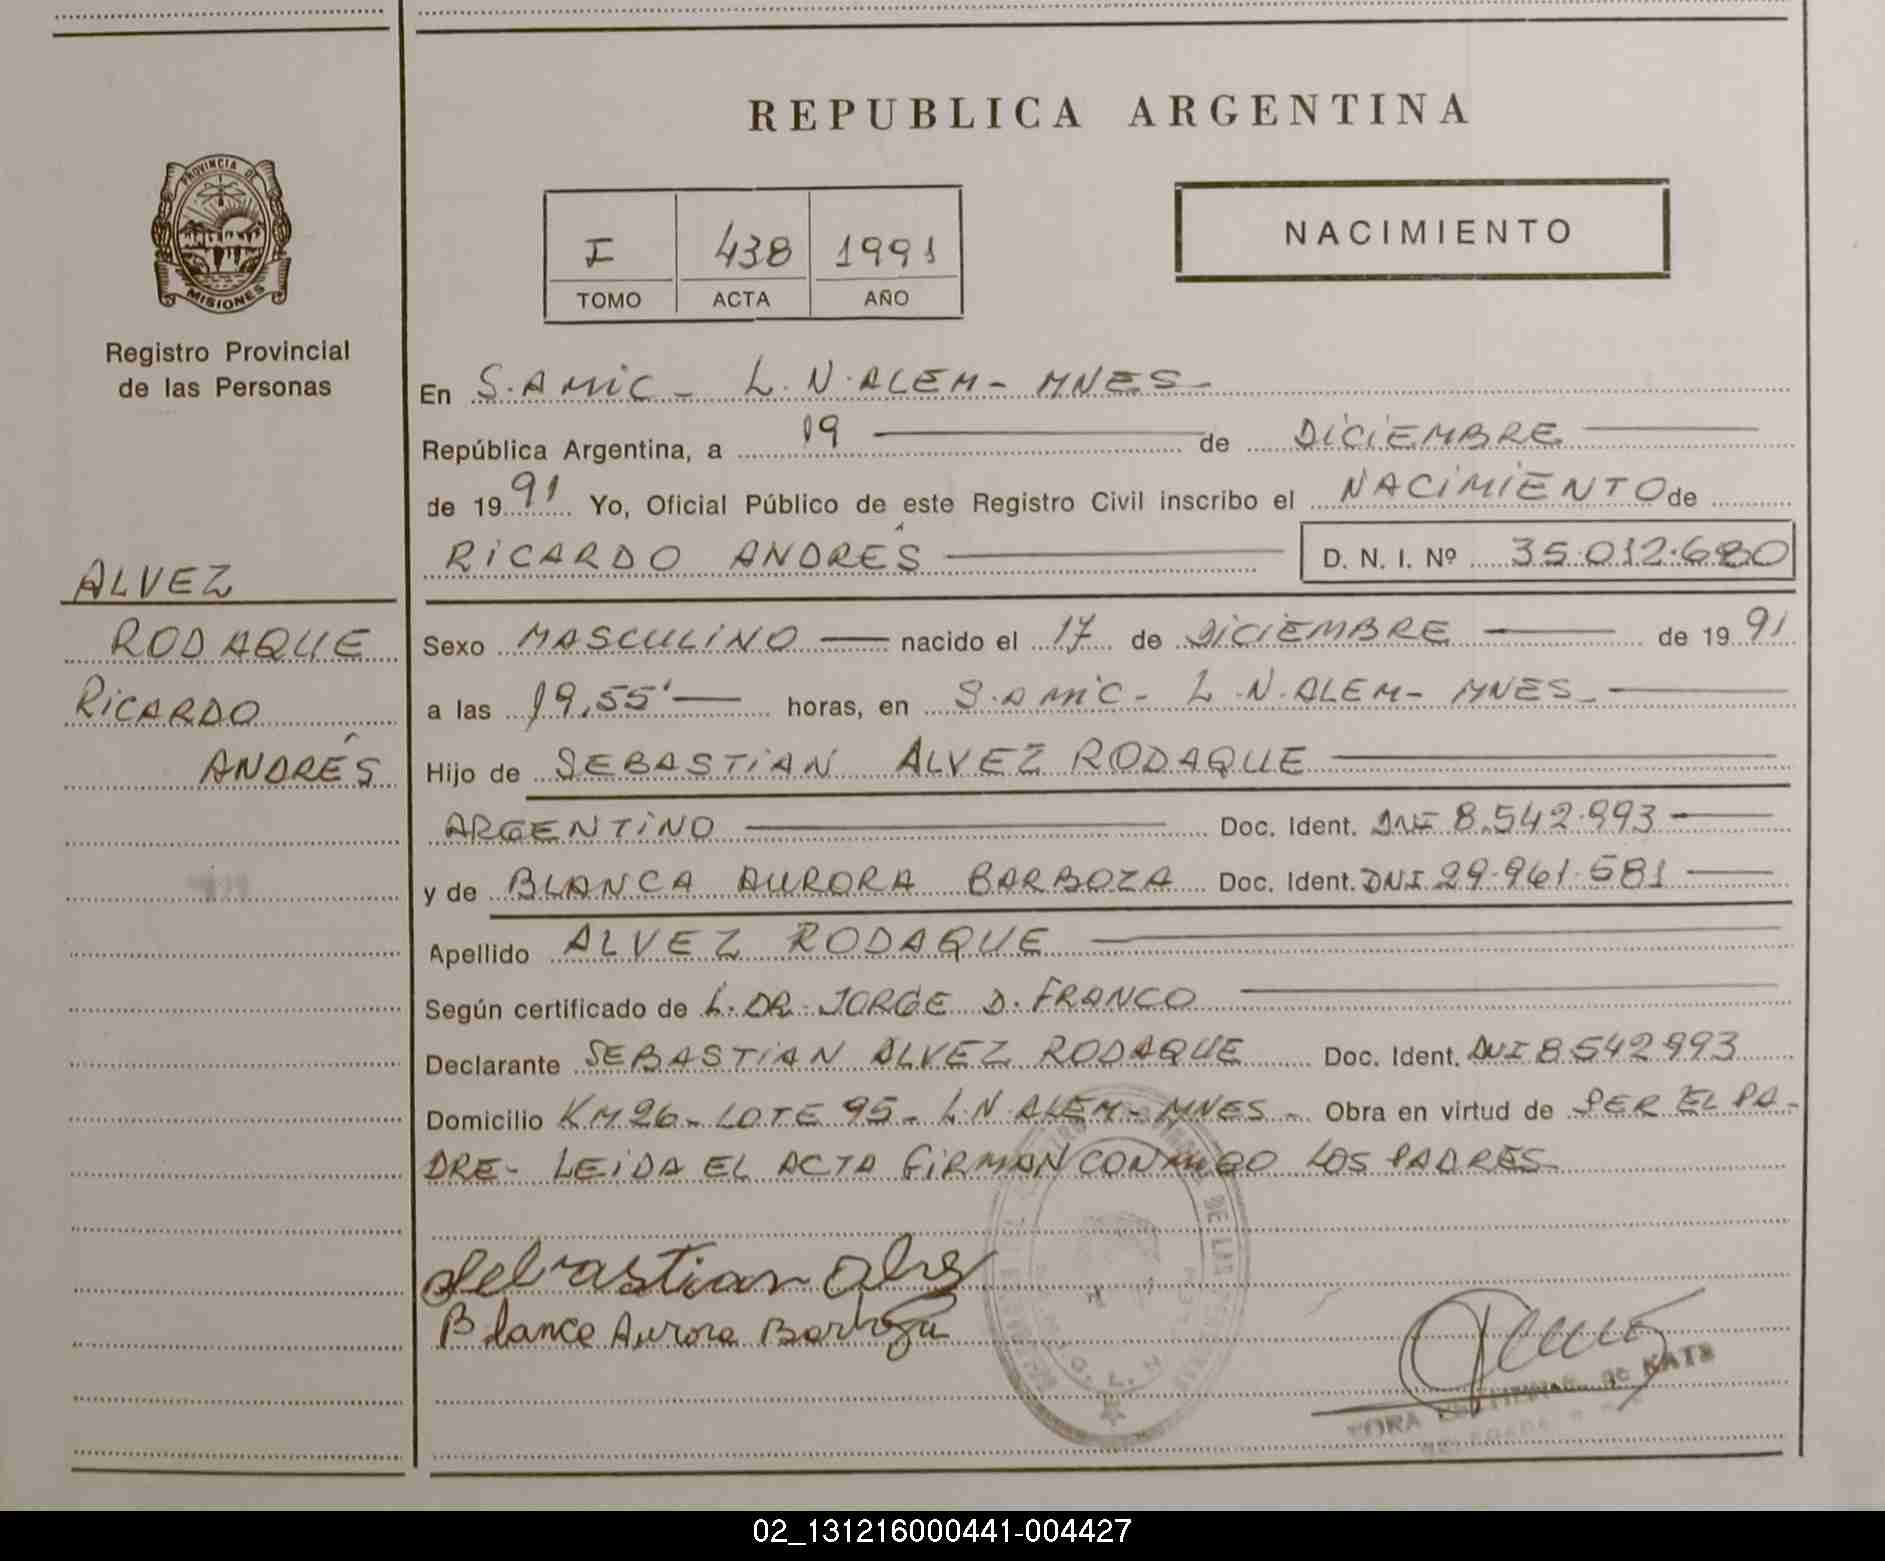 REPUBLICA ARGENTINA
PROVINCIA DE
MISIONES
Registro Provincial
de las Personas
I 438 1991
TOMO ACTA AÑO
NACIMIENTO
En S.AMIC - L.N.ALEM - MNES -
República Argentina, a 19 de DICIEMBRE
de 1991 Yo, Oficial Público de este Registro Civil inscribo el NACIMIENTO de
RICARDO ANDRÉS D. N. I. Nº 35.012.680
ALVEZ
RODAQUE
RICARDO
ANDRÉS
Sexo MASCULINO nacido el 17 de DICIEMBRE de 1991
a las 19,55' horas, en S.AMIC - L.N.ALEM - MNES -
Hijo de SEBASTIAN ALVEZ RODAQUE
ARGENTINO Doc. Ident. DNI 8.542.993
y de BLANCA AURORA BARBOZA Doc. Ident. DNI 29.961.581
Apellido ALVEZ RODAQUE
Según certificado de L. DR. JORGE D. FRANCO
Declarante SEBASTIAN ALVEZ RODAQUE Doc. Ident. DNI 8542993
Domicilio KM 26 - LOTE 95 - L.N.ALEM - MNES - Obra en virtud de SER EL PA-
DRE - LEIDA EL ACTA FIRMAN CONMIGO LOS PADRES
Sebastian Alvez
Blanca Aurora Barboza
DE KATZ
02_131216000441-004427